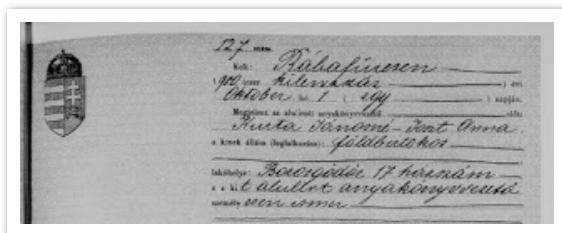 127 szám.
Kelt: Rábafüzesen
1900 ezer kilenczáz évi
Oktober hó 1 ( egy ) napján.
Megjelent az alulirott anyakönyvvezető előtt
Kurta Jánosné
a kinek állása (foglalkozása): földbirtokos
lakóhelye: 17 házszám
s a kit alulirt anyakönyvvezető
személyesen ismer